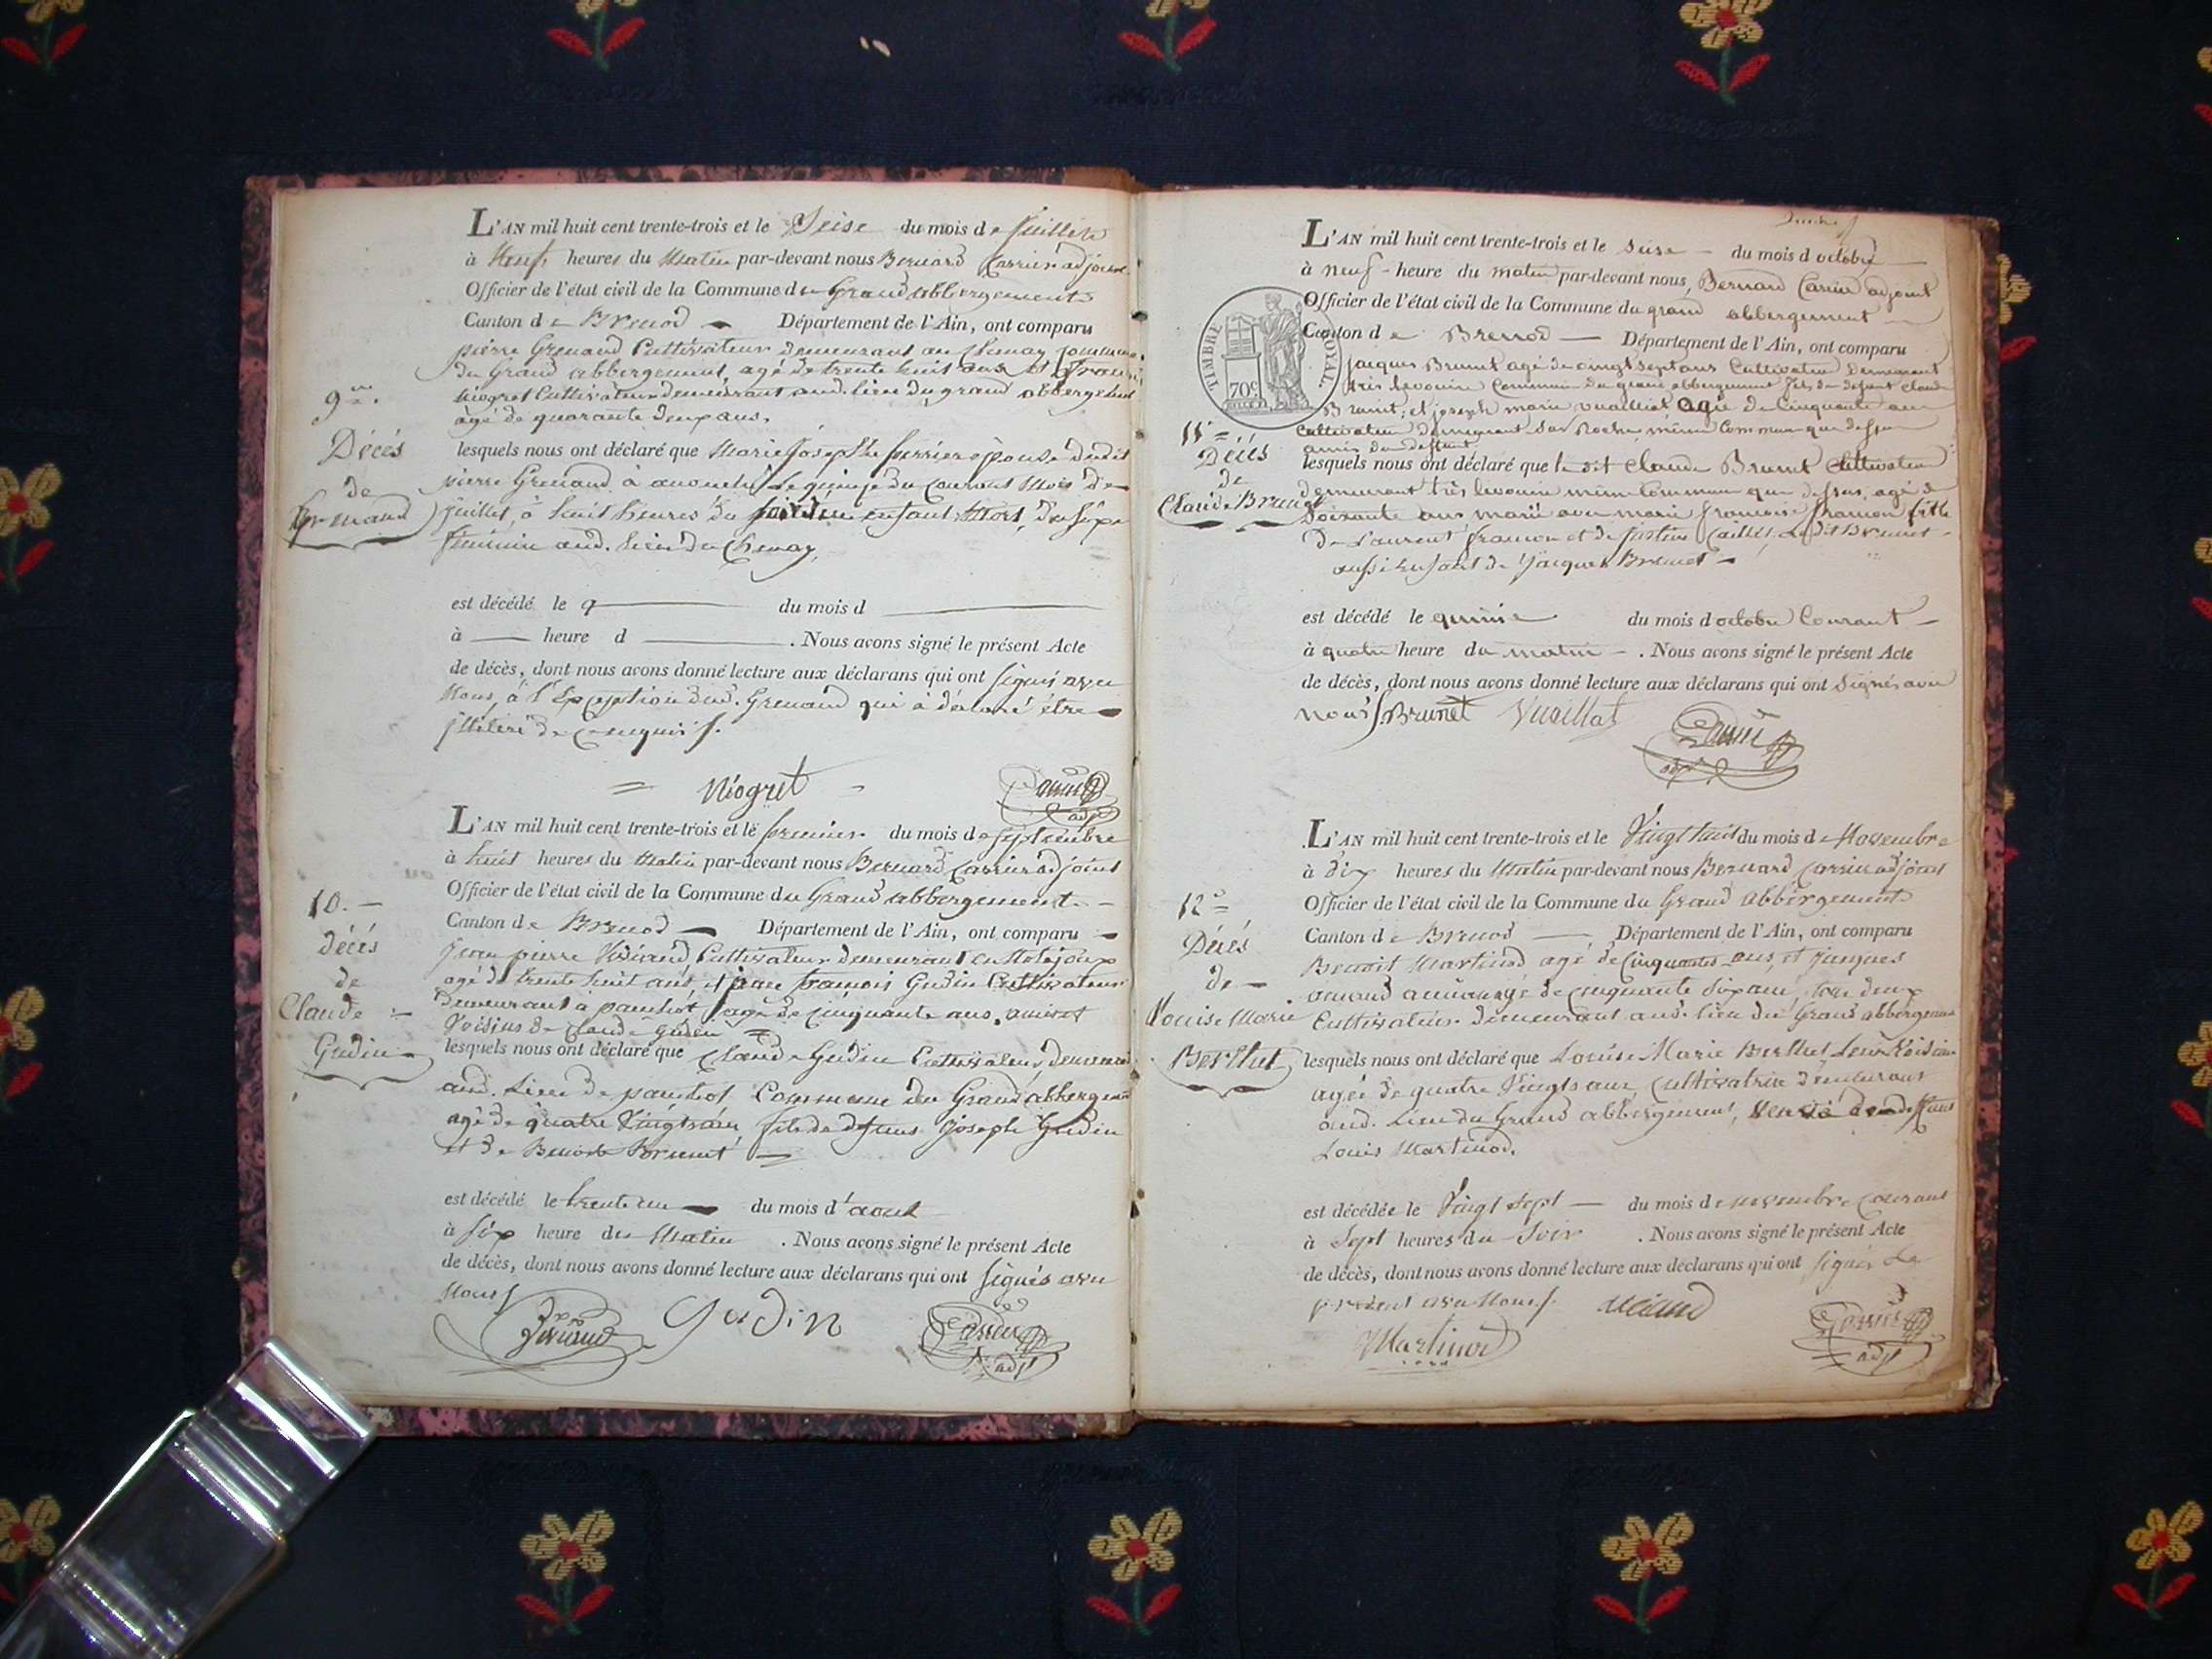 L'AN mil huit cent trente-trois et le Seise du mois de Juillet
à Neuf heures du Matin par-devant nous Bernard Carrier adjoint
Officier de l'état civil de la Commune du Grand abbergement
Canton de Brenod Département de l'Ain, ont comparu
pierre Grenaud Cultivateur demeurant au Chenay Commune
du Grand abbergement, agé de trente huit ans et
Niogret Cultivateur demeurant aud. lieu du grand abbergement
agé de quarante deux ans.
9me.
Décés
de
Grenaud
lesquels nous ont déclaré que Marie Josephte Perrier épouse dudit
pierre Grenaud à accouché le quinze du Courant Mois de
juillet, à huit heures du soir d'un enfant Mort, du sexe
féminin aud. lieu du Chenay,
est décédé le du mois d
à heure d . Nous avons signé le présent Acte
de décès, dont nous avons donné lecture aux déclarans qui ont signé avec
Nous, à l'Exception dud. Grenaud qui à déclaré être
illitéré de ce enquis.
Niogret Carrier
adjt
L'AN mil huit cent trente-trois et le premier du mois de Septembre
à huit heures du Matin par-devant nous Bernard Carrier adjoint
Officier de l'état civil de la Commune du Grand abbergement
Canton de Brenod Département de l'Ain, ont comparu
Jean pierre Cultivateur demeurant en
agé de trente huit ans, et jean francois Gudin Cultivateur
demeurant à agé de cinquante ans, amis et
Voisins de Claude Gudin
10.
décés
de
Claude
Gudin
lesquels nous ont déclaré que Claude Gudin Cultivateur demeurant
aud. Lieu de Commune du Grand abbergement
agé de quatre Vingts ans fils de defunt Joseph Gudin
et de Benoite Brunet
est décédé le trente un du mois d'aout
à six heure du Matin . Nous avons signé le présent Acte
de décès, dont nous avons donné lecture aux déclarans qui ont signés avec
Nous
Gudin Carrier
adjt
L'AN mil huit cent trente-trois et le seise du mois d octobre
à neuf heure du matin par-devant nous, Bernard Carrier adjoint
Officier de l'état civil de la Commune du grand abbergement
Canton de Brenod Département de l'Ain, ont comparu
TIMBRE ROYAL.
70c
Jacques Brunet agé de vingt sept ans Cultivateur Demeurant
très levouin Commune du grand abbergement fils de defunt Claude
Brunet; et joseph marie vuaillat agée de Cinquante ans
Cultivateur Demeurant Sur Roche, même Commune que dessus
amis du deffunt
11e
Décés
de
Claude Brunet
lesquels nous ont déclaré que le dit Claude Brunet Cultivateur
demeurant très levouin même Commune que dessus, agé de
soixante ans marié avec marie francoise framion fille
De Laurent framion et de Caillet, Ledit Brunet
aussi enfant de Jacques Brunet
est décédé le quinse du mois d octobre Courant
à quatre heure du matin . Nous avons signé le présent Acte
de décès, dont nous avons donné lecture aux déclarans qui ont signés avec
nous Brunet Vuaillat Carrier
adjt
L'AN mil huit cent trente-trois et le Vingt huit du mois de Novembre
à dix heures du Matin par-devant nous Bernard Carrier adjoint
Officier de l'état civil de la Commune du Grand abbergement
Canton de Brenod Département de l'Ain, ont comparu
Benoit Martinod agé de Cinquante ans, et Jacques
agé de cinquante six ans, tous deux
Cultivateurs demeurant aud. lieu du Grand abbergement
12e
Décés
de
Louise Marie
Berthet
lesquels nous ont déclaré que Louise Marie Berthet Leur Voisine
agée de quatre Vingts ans, Cultivatrice demeurant
aud. Lieu du Grand abbergement, Veuve de deffunt
Louis Martinod.
est décédée le Vingt Sept du mois de novembre Courant
à Sept heures du Soir . Nous avons signé le présent Acte
de décès, dont nous avons donné lecture aux déclarans qui ont signés le
présent avec Nous.
Martinod Carrier
adjt